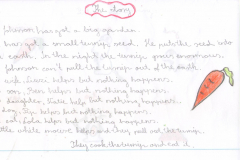 The story
Johnson has got a big garden
has got a small turnip seed. He puts the seed into
earth. In the night the turnip grows enormous.
Johnson can't pull the turnip out of the earth
wife, helps but nothing happens.
son, helps but nothing happens.
daughter, Katie helps but nothing happens.
dog, helps but nothing happens.
cat, helps but nothing happens.
The white mouse helps and they pull out the turnip.
They cook the turnip and eat it.